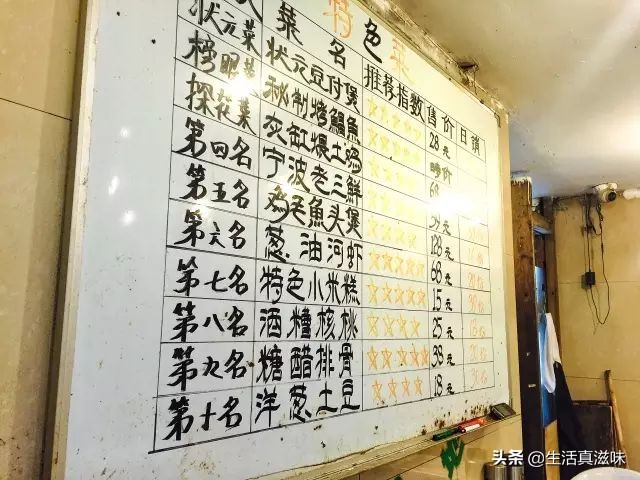 特色菜
菜名 推荐指数 售价 日销
状元菜 状元豆付煲 ☆☆☆☆☆ 28元
榜眼菜 秘制烤鳗魚 时价
探花菜 灰缸煨土鸡 68
第四名 宁波老三鲜
第五名 魚头煲 128元
第六名 葱.油河虾 68元
第七名 特色小米糕 ☆☆☆☆☆ 15元
第八名 酒糟核桃 ☆☆☆☆ 25元
第九名 糖醋排骨 ☆☆☆☆☆ 38元
第十名 洋葱.土豆 ☆☆☆☆ 18元
头条 @生活真滋味